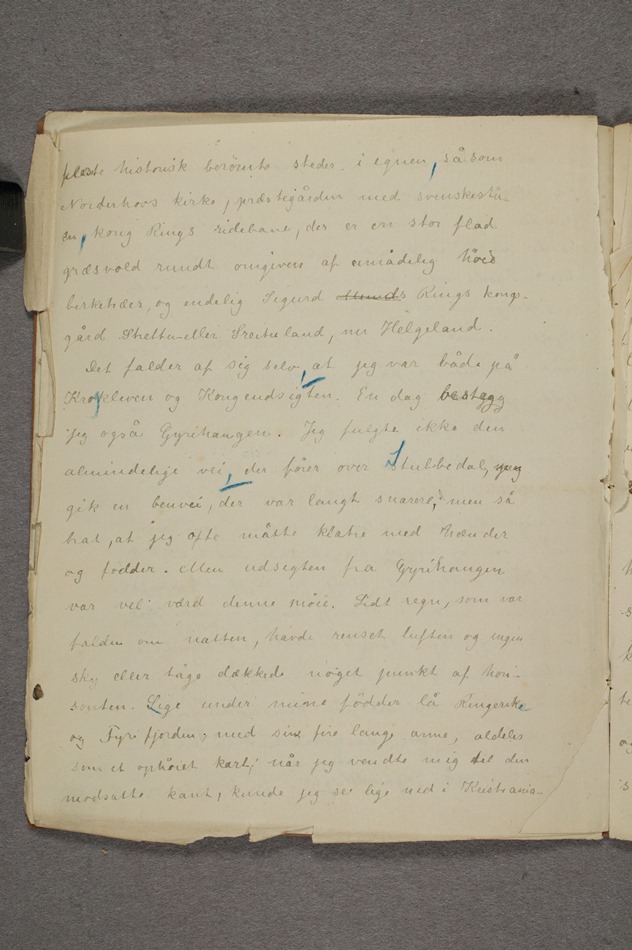 fleste historisk berömte steder i egnen, så som
Norderhovs kirke, præstegården med svenskestu-
en, kong Rings ridebane, der er en stor flad
græsvold rundt omgiven af umådelig höie
birketræer, og endelig Sigurd Rings kongs-
gård Strettu- eller Streituland, nu Helgeland.
Det falder af sig selv, at jeg var både på
Krokleven og Kongeudsigten. En dag besteg
jeg også Gyrihaugen. Jeg fulgte ikke den
almindelige vei, der förer over Stubbedal, jeg
gik en benvei, der var langt snarere, men så
brat, at jeg ofte måtte klatre med hænder
og födder. Men udsigten fra Gyrihaugen
var vel værd denne möie. Lidt regn, som var
falden om natten, havde renset luften og ingen
sky eller tåge dækkede noget punkt af hori-
sonten. Lige under mine födder lå Ringerike
og Tyrifjorden med sine fire lange arme, aldeles
som et ophöiet kart; når jeg vendte mig til den
modsatte kant, kunde jeg se lige ned i Kristiania-